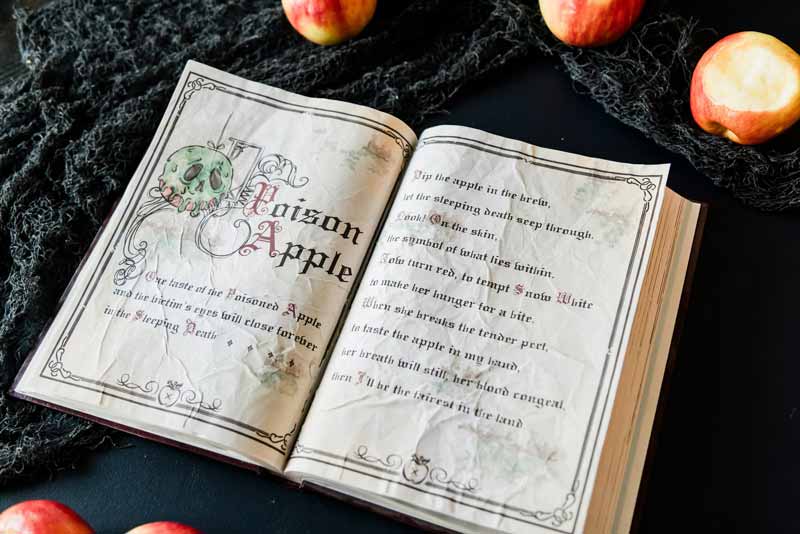 Poison
Apple
One taste of the Poisoned Apple
and the victim's eyes will close forever
in the Sleeping Death
Dip the apple in the brew,
let the sleeping death seep through.
Look! On the skin,
the symbol of what lies within.
Now turn red, to tempt Snow White
to make her hunger for a bite.
When she breaks the tender peel,
to taste the apple in my hand,
her breath will still, her blood congeal,
then I'll be the fairest in the land